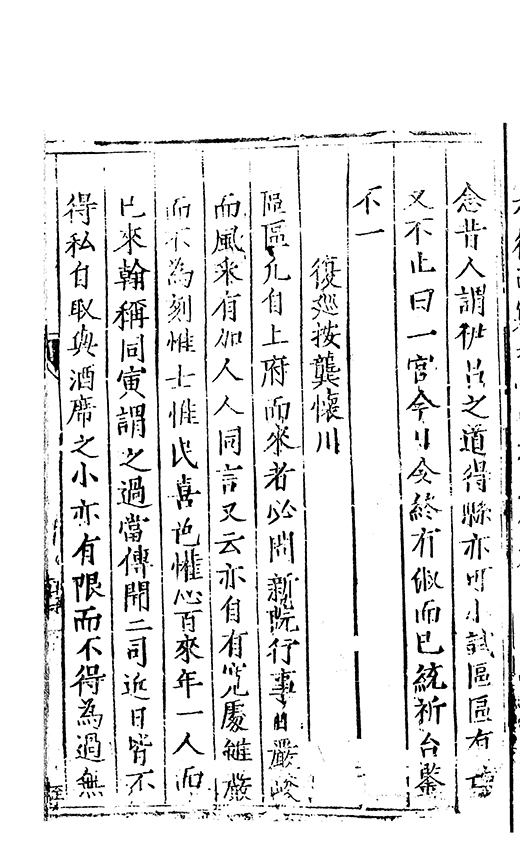 念昔人謂伊呂之道得縣亦可小試區區有
又不止曰一官今日令終有俶而已統祈台鑒
不一
復廵按龔懷川
區區凡自上府而來者必問新院行事曰嚴峻
而風采有加人人同言又云亦自有寬處雖嚴
而不為刻惟士惟民喜也惟心百來年一人而
已來翰稱同寅謂之過當傳聞二司近日皆不
得私自取與酒席之小亦有限而不得為過無